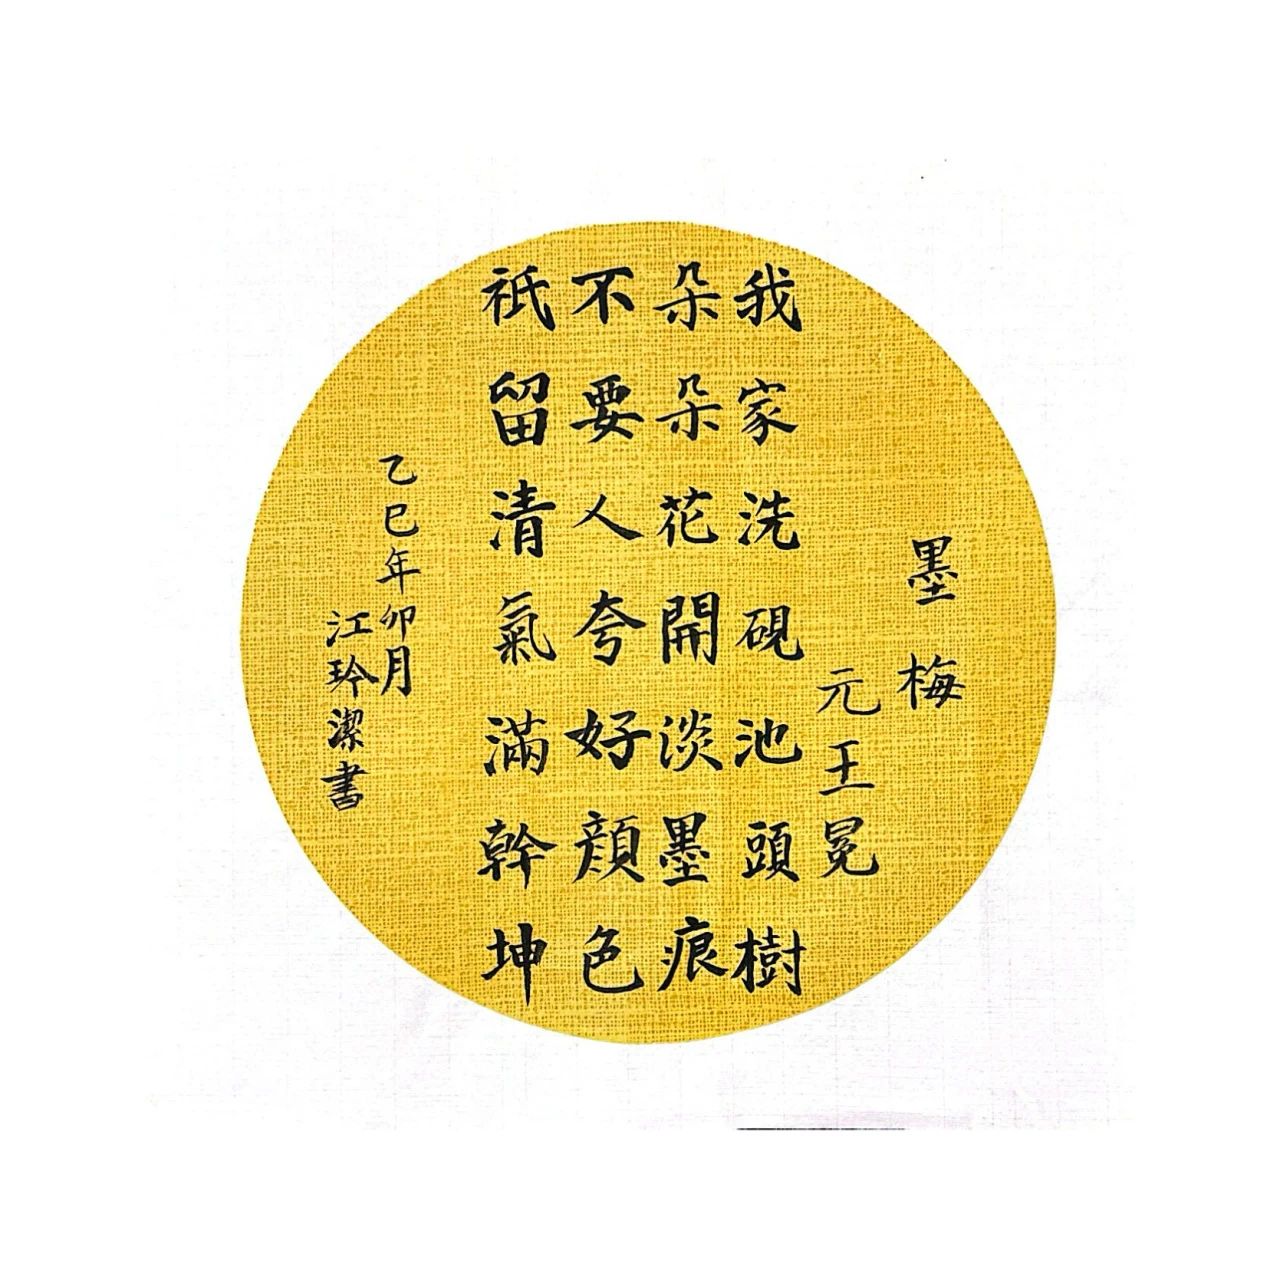 墨梅
元王冕
我家洗硯池頭樹
朵朵花開淡墨痕
不要人夸好顏色
祇留清氣滿幹坤
乙巳年卯月
江玲潔書